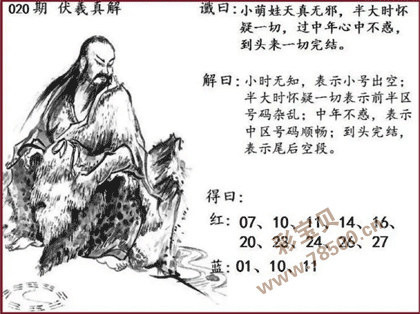 020期 伏羲真解
谶曰：小萌娃天真无邪，半大时怀
疑一切，过中年心中不惑，
到头来一切完结。
解曰：小时无知，表示小号出空；
半大时怀疑一切表示前半区
号码杂乱；中年不惑，表示
中区号码顺畅；到头完结，
表示尾后空段。
得曰：
红：07、10、11、14、16、
20、23、24、26、27
蓝：01、10、11
彩宝贝
www.78500.cn